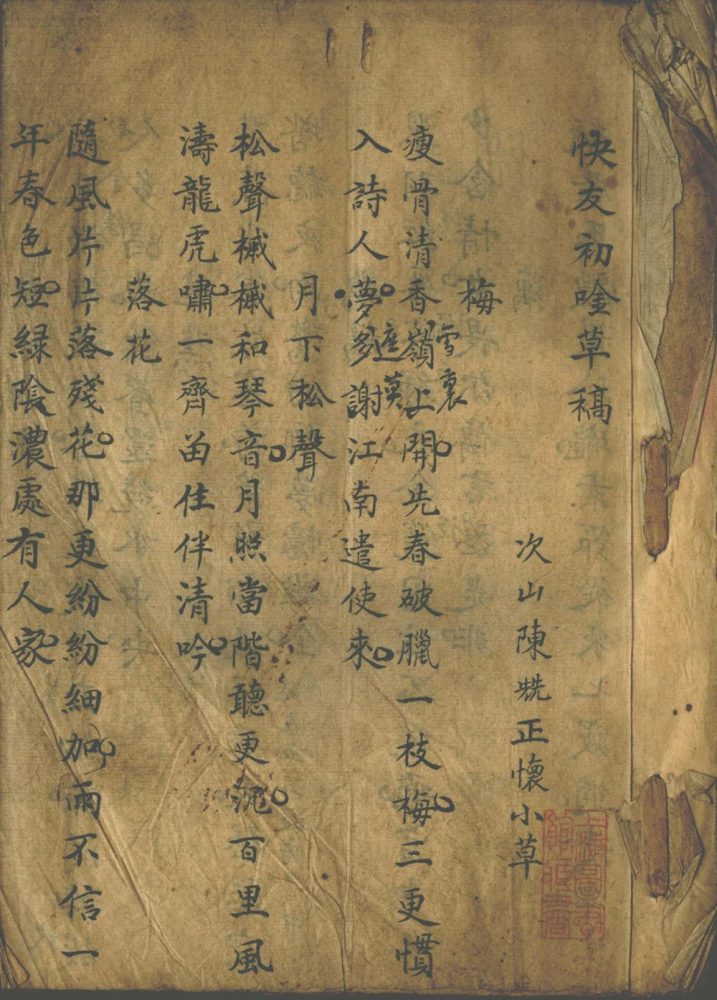 快友初唫草稿
次山陳㲝正懷小草
梅
瘦骨清香嶺上開先春破臘一枝梅三更慣
雪裏
入詩人夢多謝江南遣使來
莫
月下松聲
松聲槭槭和琴音月照當階聽更沉百里風
濤龍虎嘯一齊留住伴清吟
落花
隨風片片落殘花那更紛紛細加雨不信一
年春色短綠陰濃處有人家